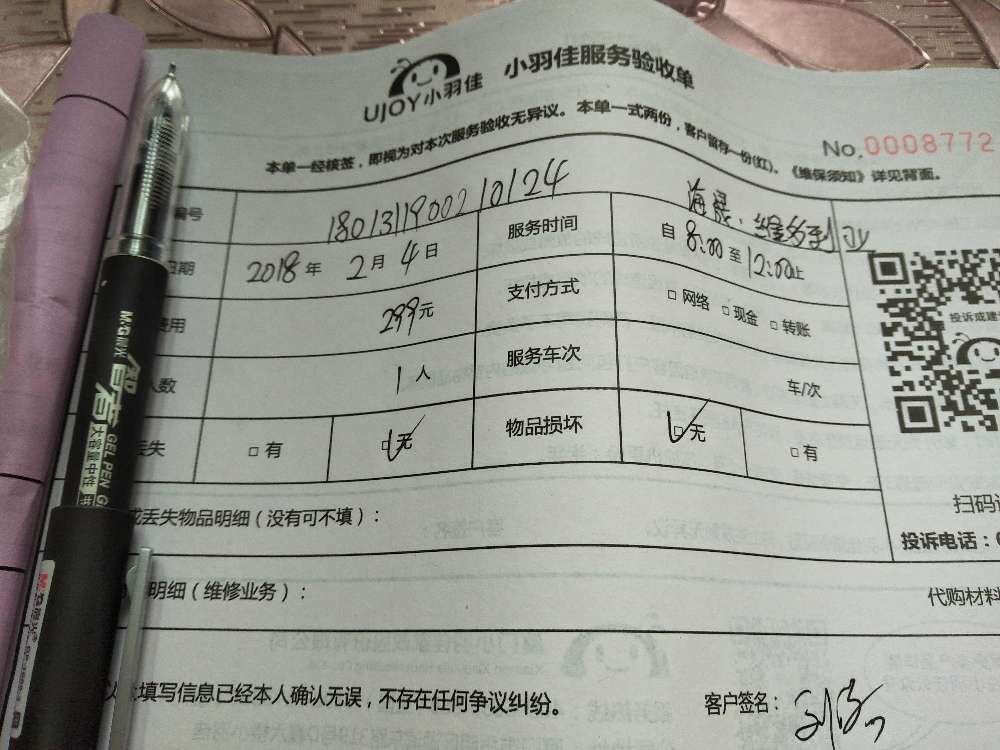 UJOY小羽佳 小羽佳服务验收单
本单一经核签，即视为对本次服务验收无异议。本单一式两份，客户留存一份(红)。《维保须知》详见背面。
No.0008772
编号 18013119002 10124
日期 2018年 2月 4日 服务时间 自 8:00 至 12:00止
费用 299元 支付方式 □ 网络 □ 现金 □ 转账
人数 1 人 服务车次 车/次
丢失 □ 有 □ 无 物品损坏 □ 无 □ 有
投诉或建
或丢失物品明细（没有可不填）：
扫码
投诉电话：
明细（维修业务）：
代购材料
以上填写信息已经本人确认无误，不存在任何争议纠纷。
客户签名：
M&G晨光
GEL PEN
大容量中性